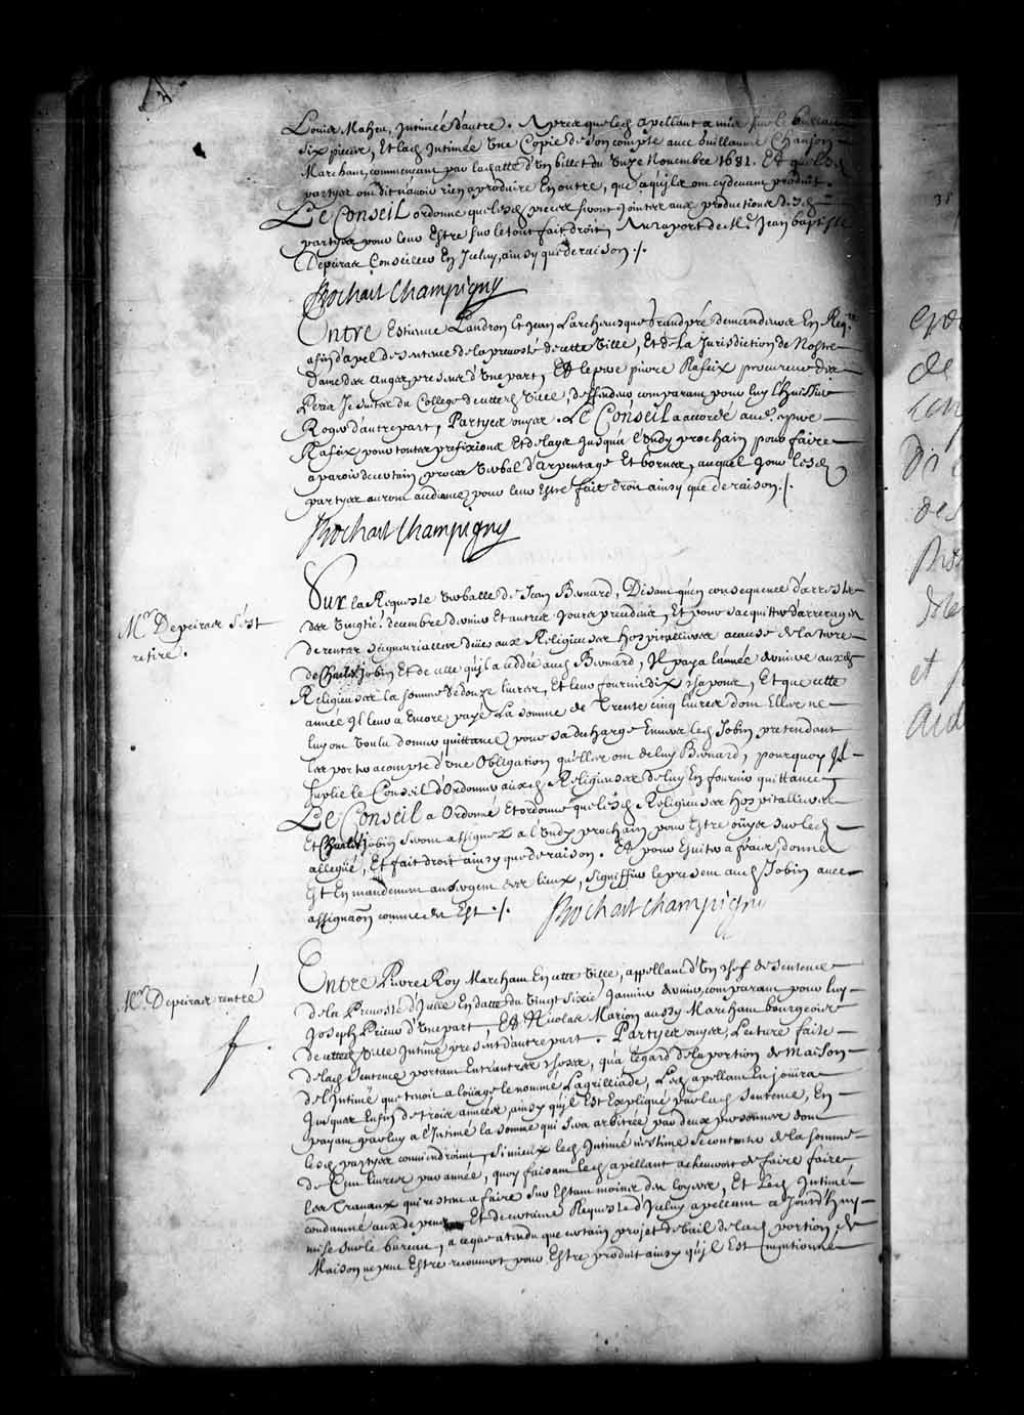 Louis Maheu, Intimée d'autre. Aprez que led. apellant a mis sur le bureau
six pieces, Et lad. Intimée Une Copie de son compte avec Guillaume Chanjon
Marchand, commençant par la datte d'Un billet du Unze Novembre 1681. Et que lesd.
partyes ont dit n'avoir rien a produire En outre, que ce qu'jls ont cydevant produit.
Le Conseil ordonne que lesd. pieces seront Jointes aux productions desd.
partyes pour leur Estre sur le tout fait droit, Au raport de Me. Jean baptiste
Depeiras Conseiller En Jceluy, ainsy que de raison ./.
Bochart Champigny
Entre Estienne Landron Et Jean Larchevesque Grandpré demandeurs En Reqte.
afin d'apel de sentence de la prevosté de cette Ville, Et de la Jurisdiction de Nostre
Dame des Anges, presens d'Une part, Et le pere pierre Rafeix procureur des
Peres Jesuites du College de cetted. Ville, deffendeur comparant pour luy l'huissier
Roger d'autre part, Partyes ouyes. Le Conseil a accordé aud. pere
Rafeix pour toutes prefixions Et delays Jusqu'a l'Undy prochain pour faire
aparoir de certain procez Verbal d'arpentage Et bornes, auquel Jour lesd.
partyes auront audiance pour leur Estre fait droit ainsy que de raison ./.
Bochart Champigny
Mr. Depeiras s'est
retiré.
Sur la Requeste Verballe de Jean Bernard, Disant qu'en consequence d'arrests
des Vingtie. decembre dernier Et autres Jours precedens, Et pour s'acquitter d'arrerages
de rentes seigneurialles deües aux Religieuses hospitallieres acause de la terre
de Charles Jobin Et de celle qu'jl a ceddée aud. Bernard, Jl paya l'année derniere auxd.
Religieuses la somme de douze livres, Et leur fournit dix chapons, Et que cette
année Jl leur a Encore payé La somme de Trente cinq livres dont Elles ne
luy ont Voulu donner quittance pour sa decharge Envers led. Jobin pretendant
les porter acompte d'Une Obligation qu'elles ont de luy Bernard, pourquoy Jl
suplie le Conseil d'Ordonner auxd. Religieuses de luy En fournir quittance
Le Conseil a Ordonné Et ordonne que lesd. Religieuses hospitallieres
Et Charles Jobin seront assignez a l'Undy prochain pour Estre oüyes sur led.
allegüé, Et fait droit ainsy que de raison. Et pour Eviter a frais, donné
Est En mandement au sergent des lieux, signiffier le present aud. Jobin avec
assignaõn comme dit Est ./. Bochart Champigny
Mr. Depeiras rentré
Entre Pierre Roy Marchant En cette Ville, appellant d'Un chef de sentence
de la Prevosté d'Jcelle En datte du Vingt Sixie Janvier dernier, comparant pour luy
Joseph Prieur d'Une part, Et Nicolas Marion aussy Marchant bourgeois
de cetted. Ville Intimé present d'autre part. Partyes ouyes, Lecture faite
de lad. sentence portant Entr'autres choses, qu'a l'égard de la portion de Maison
de l'Intimé que tenoit a loüage le nommé Lagrilliade, Led. apellant En joüira
Jusques Enfin de trois années, ainsy qu'jl Est Expliqué par lad. sentence, En
payant par luy a l'Intimé la somme qui sera arbitrée par deux personnes dont
lesd. partyes conviendront, si mieux led. Intimé n'estime se contenter de la somme
de Cent livres par année, quoy faisant led. apellant acheveroit de faire faire
les Travaux qui restent a faire sur Estant moins des loyers, Et Led. Intimé
condamné aux depens. Et de certaine Requeste d'Jceluy apellant a Jourd'huy
mise sur le bureau, a ce que atendu que certain projet de bail de lad. portion de
Maison ne peut Estre recouvert pour Estre produit ainsy qu'jl Est mentionné
et